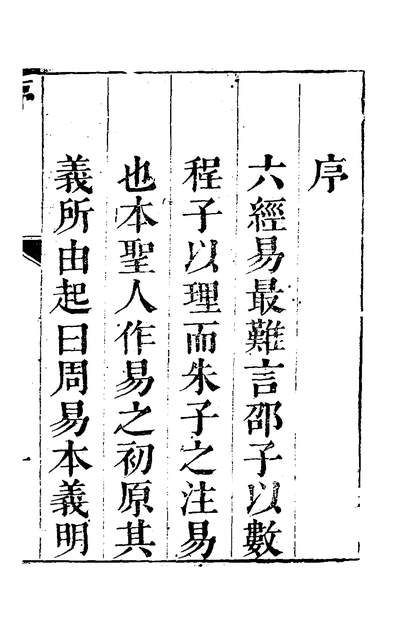 序
六經易最難言邵子以數
程子以理而朱子之注易
也本聖人作易之初原其
義所由起曰周易本義明